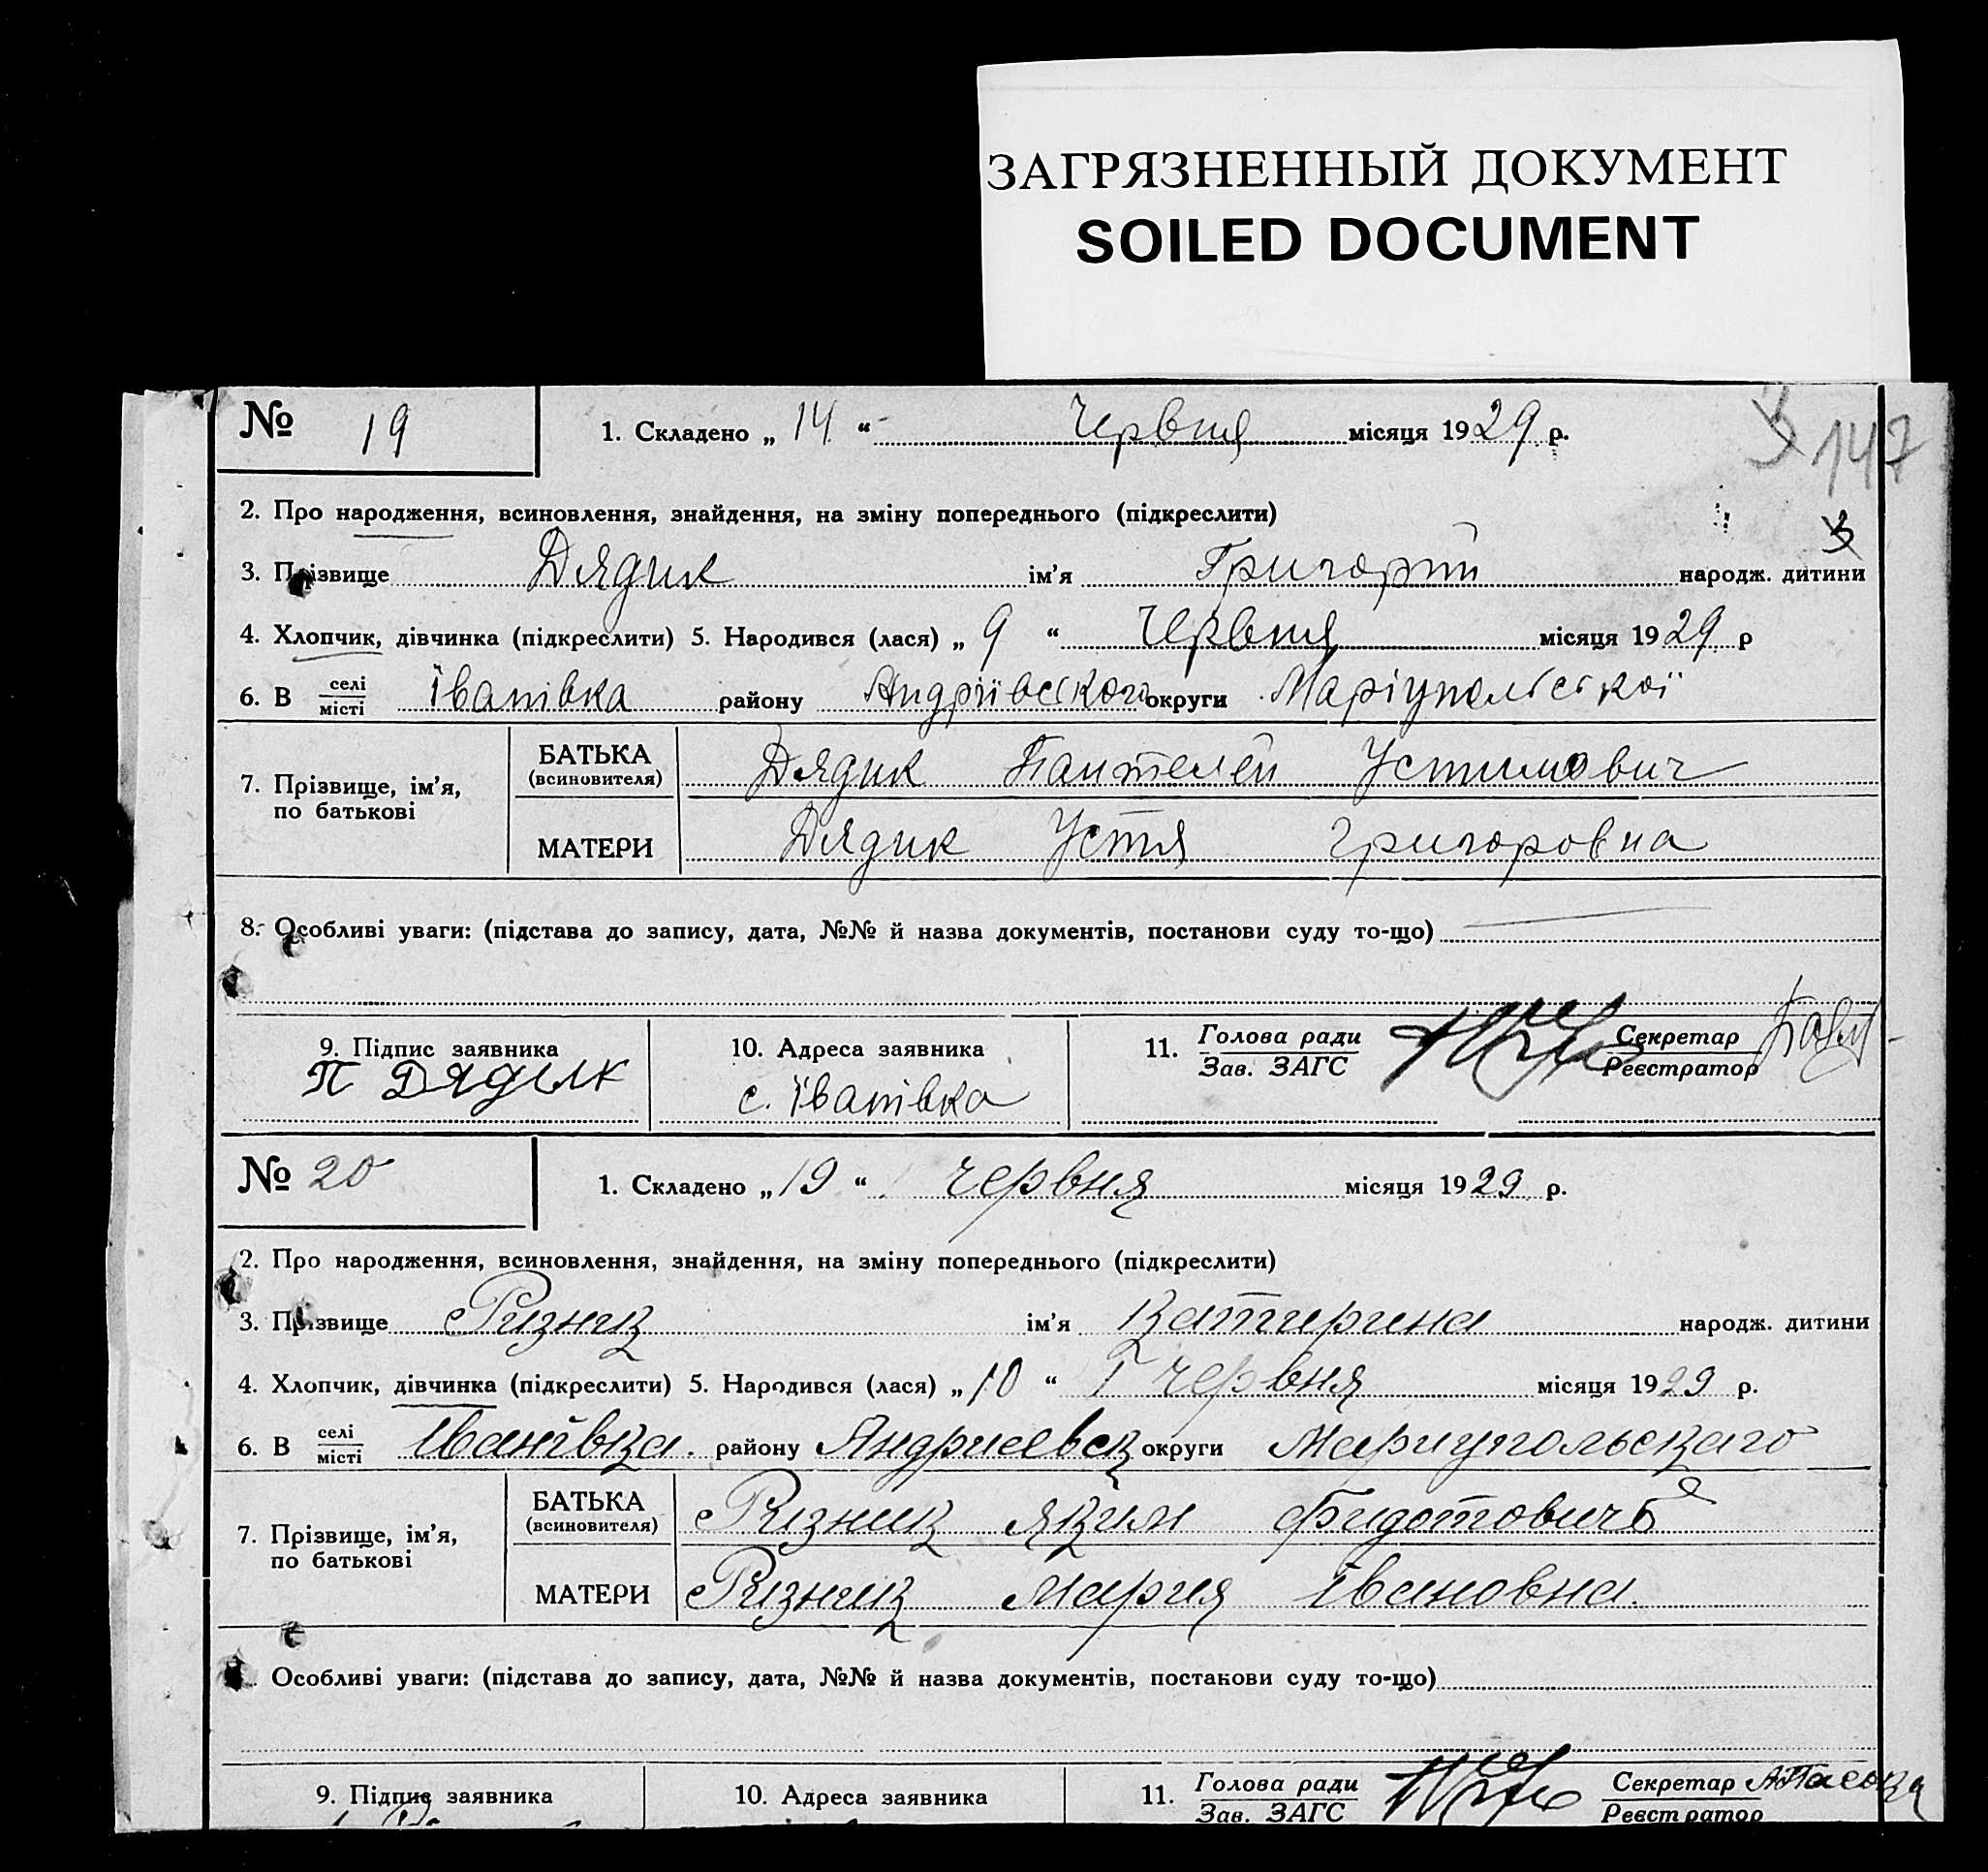 ЗАГРЯЗНЕННЫЙ ДОКУМЕНТ
SOILED DOCUMENT
147
№ 19 1. Складено „ 14 “ Червня місяця 1929 р.
2. Про народження, всиновлення, знайдення, на зміну попереднього (підкреслити)
3. Прізвище Дядик ім’я Григорій народж. дитини
4. Хлопчик, дівчинка (підкреслити) 5. Народився (лася) „ 9 “ Червня місяця 1929 р
6. В селі місті Іванівка району Андріївського округи Маріупольської
7. Прізвище, ім’я, по батькові БАТЬКА (всиновителя) Дядик Пантелей Устимович
МАТЕРИ Дядик Устя Григоровна
8. Особливі уваги: (підстава до запису, дата, №№ й назва документів, постанови суду то-що)
9. Підпис заявника 10. Адреса заявника 11. Голова ради Зав. ЗАГС Секретар Реєстратор
П Дядик с. Іванівка
№ 20 1. Складено „ 19 “ червня місяця 1929 р.
2. Про народження, всиновлення, знайдення, на зміну попереднього (підкреслити)
3. Прізвище Ризник ім’я Катирина народж. дитини
4. Хлопчик, дівчинка (підкреслити) 5. Народився (лася) „ 10 “ червня місяця 1929 р.
6. В селі місті Іванівка. району Андриевск округи Мариупольскаго
7. Прізвище, ім’я, по батькові БАТЬКА (всиновителя) Ризник Яким Фидотовичь
МАТЕРИ Ризник Мария Івановна.
Особливі уваги: (підстава до запису, дата, №№ й назва документів, постанови суду то-що)
9. Підпис заявника 10. Адреса заявника 11. Голова ради Зав. ЗАГС Секретар Реєстратор